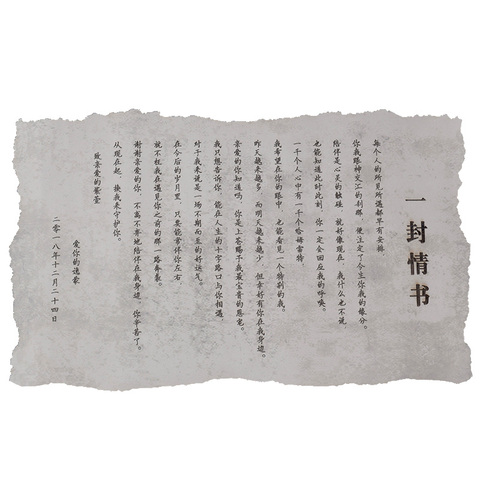 一封情书
每个人的所见所遇都早有安排,
你我眼神交汇的刹那,便注定了今生你我的缘分。
陪伴是心灵的触碰,就好像现在,我什么也不说,
也能知道此时此刻,你一定会回应我的呼唤。
一千个人心中有一千个哈姆雷特,
我希望在你的眼中,也能看见一个特别的我。
昨天越来越多,而明天越来越少,但幸好有你在我身边。
亲爱的你知道吗,你是上苍赐予我最宝贵的恩宠。
我只想告诉你,能在人生的十字路口与你相遇,
对于我来说是一场不期而至的好运气。
在今后的岁月里,只要能常伴你左右,
就不枉我在遇见你之前的那一路奔袭。
谢谢亲爱的你,不离不弃地陪伴在我身边,你辛苦了。
从现在起,换我来守护你。
致亲爱的蒙蒙
爱你的逸歌
二零一八年十二月二十四日